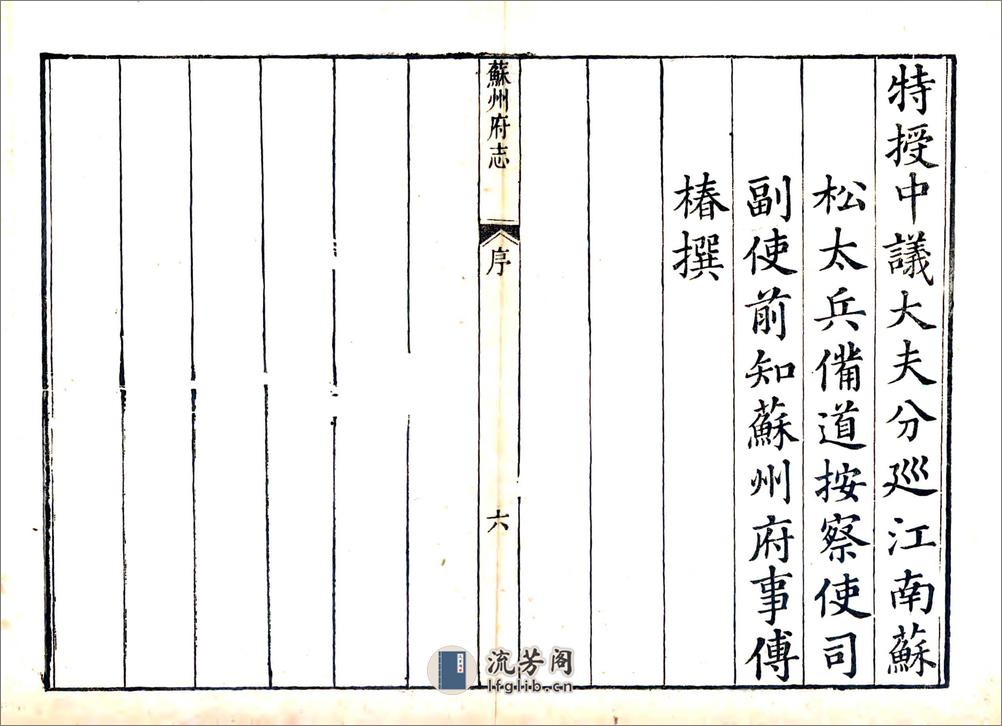 特授中議大夫分廵江南蘇
松太兵備道按察使司
副使前知蘇州府事傅
椿撰
蘇州府志
序
六
流芳阁
lfglib.cn